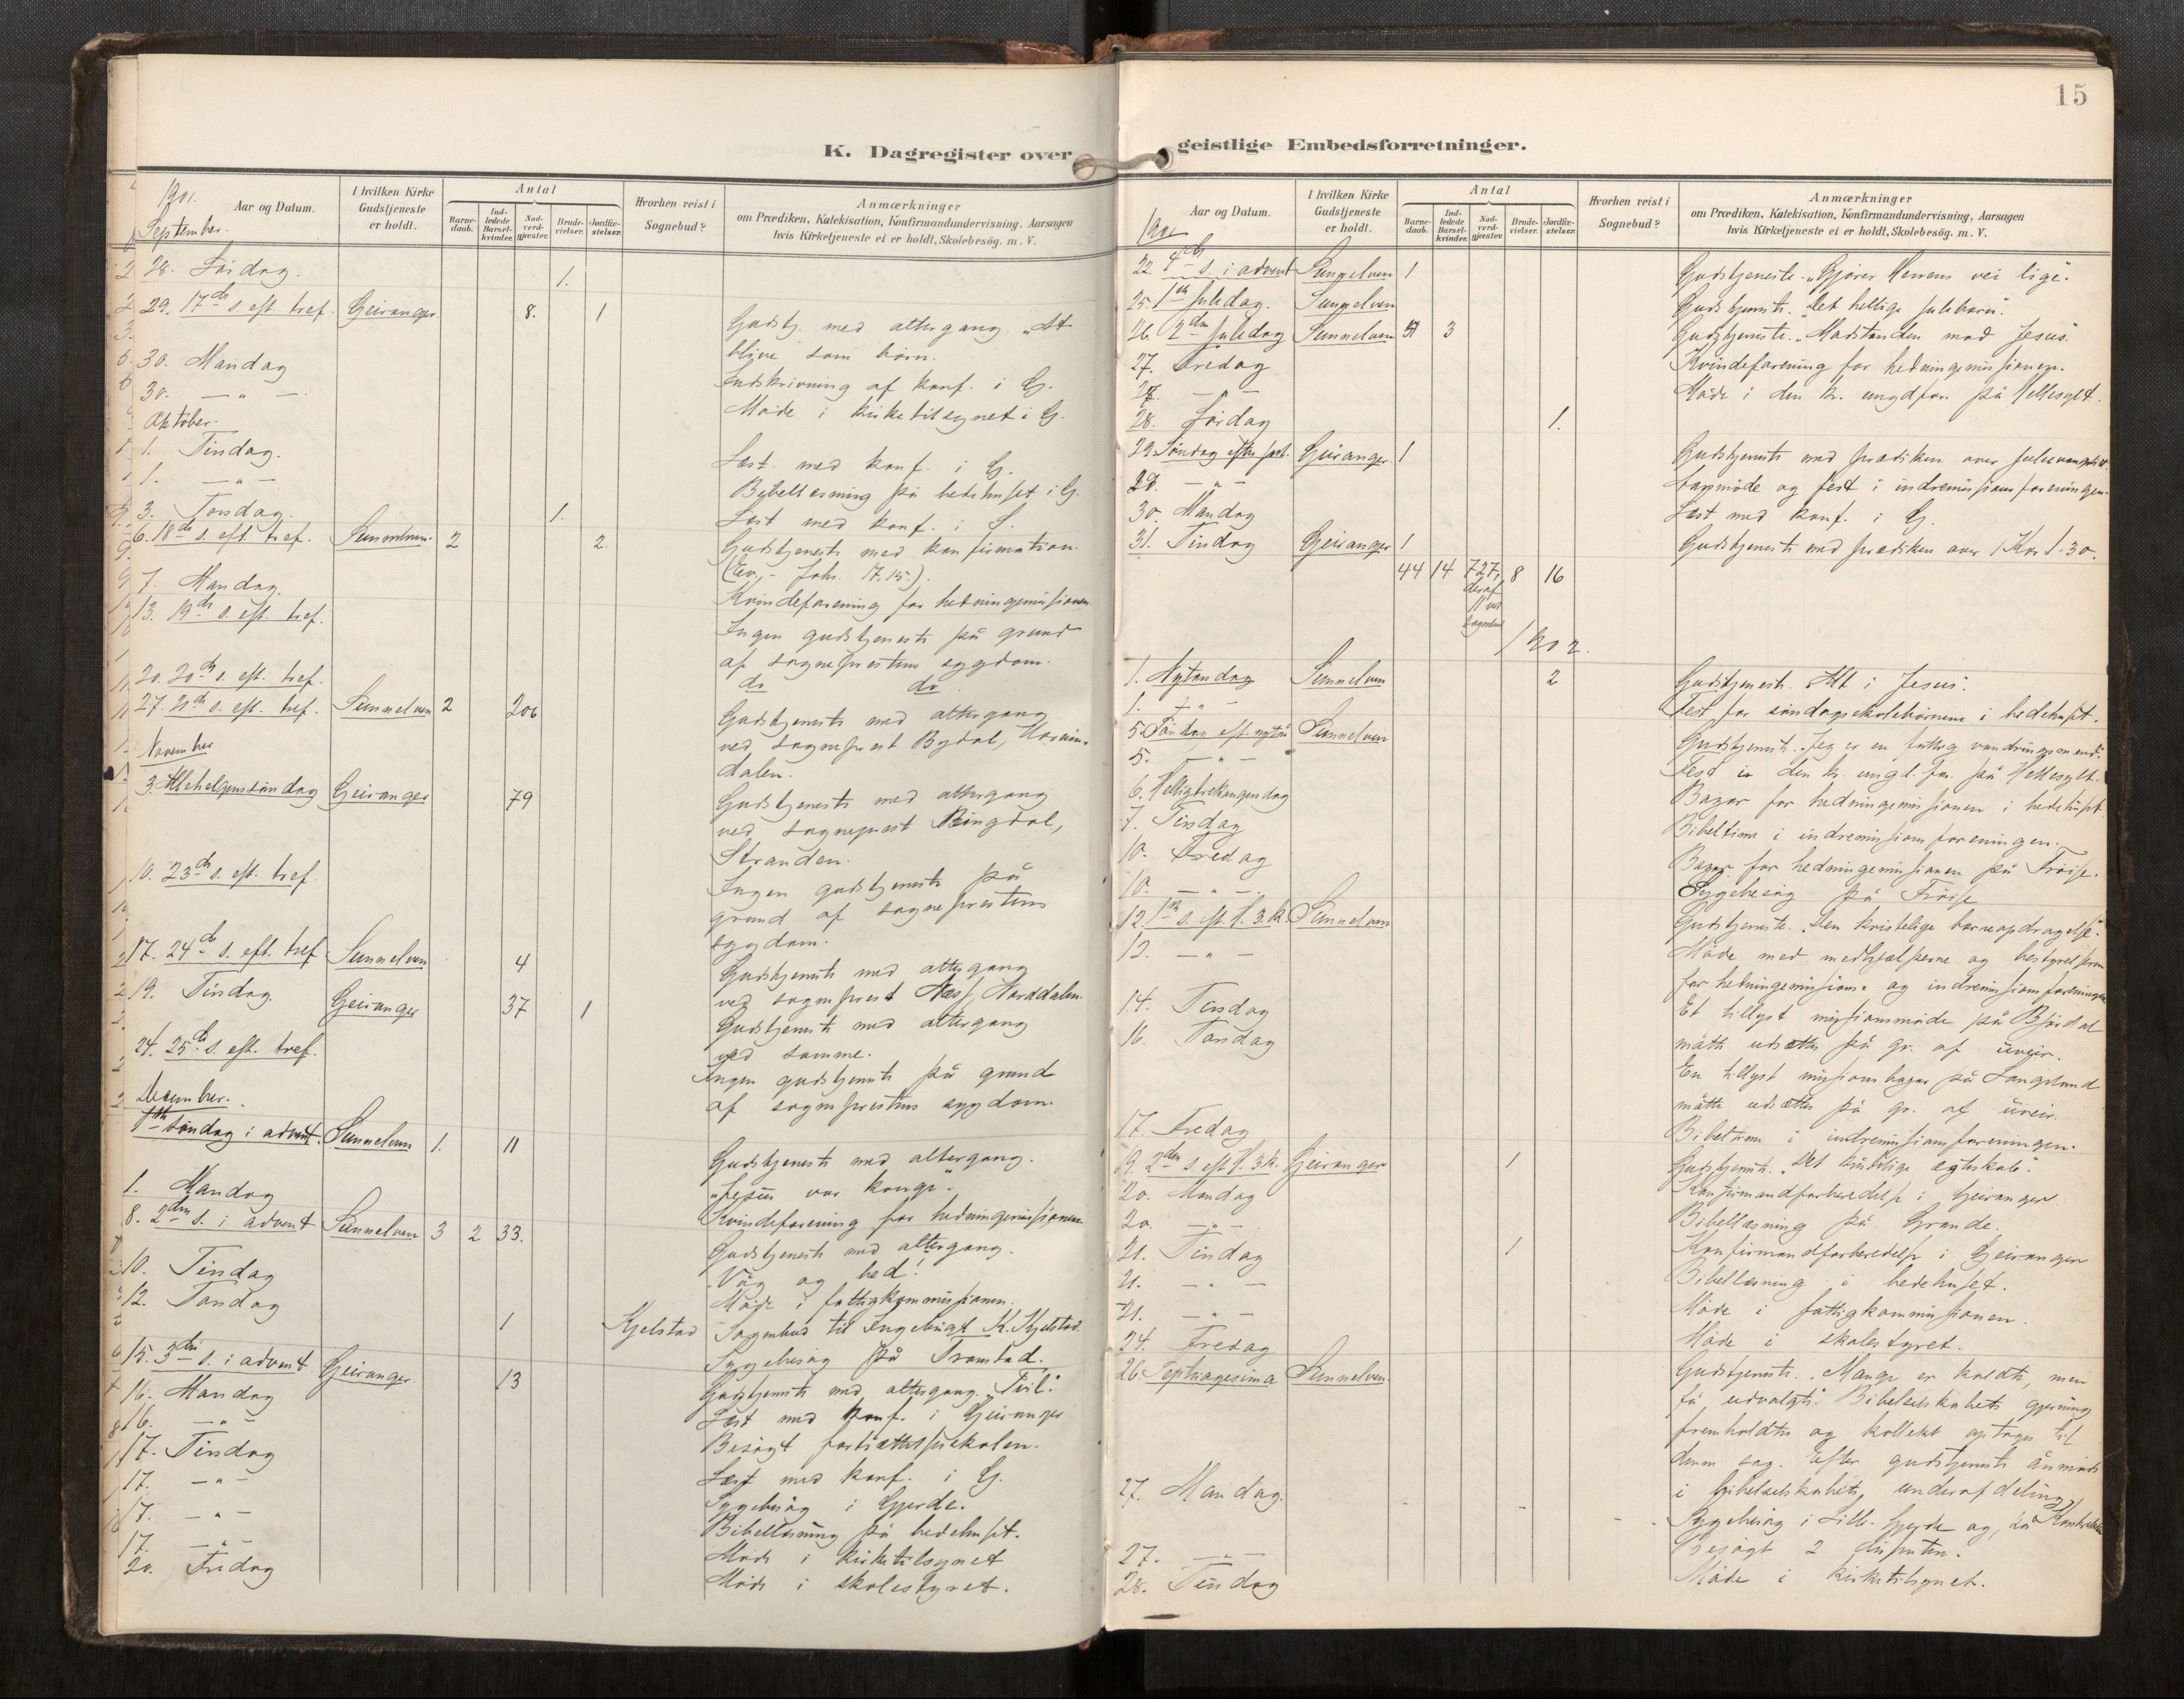 K. Dagregister over
1901.
Aar og Datum.
I hvilken Kirke Gudstjeneste er holdt.
Antal
Barnedaab.
Indledede Barselkvinder.
Nadverdgjæster.
Brudevielser.
Jordfæstelser.
Hvorhen reist i Sognebud?
Anmærkninger
om Prædiken, Katekisation, Konfirmandundervisning, Aarsagen
hvis Kirketjeneste ei er holdt, Skolebesög. m. V.
September.
28. Lördag. 1.
29. 17de s. eft. tref. Geiranger 8. 1 Gudstj. med altergang. "At
blive som børn.
30. Mandag Indskrivning af konf. i G.
30. — " — Møde i kirketilsynet i G.
Oktober.
1. Tirsdag. Læst med konf. i G.
1. — " — Bibellæsning på bedehuset i G.
3. Torsdag. 1. Læst med konf. i S.
6. 18de s. eft. tref. Sunnelven. 2 2. Gudstjeneste med konfirmation.
(Ev. - Joh. 17.15.).
7. Mandag. Kvindeforening for hedningemissionen.
13. 19de s. eft. tref. Ingen gudstjeneste på grund
af sogneprestens sygdom.
20. 20de s. eft. tref. do do.
27. 21de s. eft. tref. Sunnelven 2 206 Gudstjeneste med altergang
ved sogneprest Bydal, Hornin-
dalen.
November
3. Allehelgenssøndag Geiranger 79 Gudstjeneste med altergang
ved sogneprest Ringdal,
Stranden.
10. 23de s. eft. tref. Ingen gudstjeneste på
grund af sogneprestens
sygdom.
17. 24de s. eft. tref Sunnelven 4 Gudstjeneste med altergang
ved sogneprest Næss, Norddalen.
19. Tirsdag. Geiranger 37 1 Gudstjeneste med altergang
ved samme.
24. 25de s. eft. tref. Ingen gudstjeneste på grund
af sogneprestens sygdom.
December.
1ste søndag i advent. Sunnelven 1. 11 Gudstjeneste med altergang.
"Jesus vor konge".
1. Mandag Kvindeforening for hedningemissionen.
8. 2den s. i advent Sunnelven 3 2 33. Gudstjeneste med altergang.
Våg og bed!
10. Tirsdag Møde i fattigkommissionen.
12. Torsdag 1 Kjelstad Sognebud til Ingebrigt K. Kjelstad.
Sygebesøg på Tramstad.
15. 3die s. i advent Geiranger. 13 Gudstjeneste med altergang. "Tvil".
16. Mandag Læst med konf. i Geiranger
16. — " — Besøgt fortsættelsesskolen.
17. Tirsdag Læst med konf. i G.
17. — " — Sygebesøg i Gjerde.
17. — " — Bibellæsning på bedehuset.
17. — " — Møde i kirketilsynet
20. Fredag Møde i skolestyret.
geistlige Embedsforretninger.
15
1901
Aar og Datum.
I hvilken Kirke Gudstjeneste er holdt.
Antal
Barnedaab.
Indledede Barselkvinder.
Nadverdgjæster.
Brudevielser.
Jordfæstelser.
Hvorhen reist i Sognebud?
Anmærkninger
om Prædiken, Katekisation, Konfirmandundervisning, Aarsagen
hvis Kirketjeneste ei er holdt, Skolebesög. m. V.
22. 4de s. i advent Sunnelven 1 Gudstjeneste. "Gjører Herrens vei lige".
25. 1ste juledag. Sunnelven Gudstjeneste. "Det hellige julebarn".
26. 2den juledag Sunnelven 3 Gudstjeneste. "Modstanden mod Jesus".
27. Fredag Kvindeforening for hedningemissionen.
27. — " — Møde i den k. ungdfor. på Hellesylt.
28. Lørdag 1.
29. Søndag efter jul. Geiranger. 1 Gudstjeneste med prædiken over juleevangeliet.
29. — " — Årsmøde og fest i indremissionsforeningen.
30. Mandag Læst med konf. i G.
31. Tirsdag Geiranger 1 Gudstjeneste med prædiken over 1 Kor 1.30.
44 14 727, 8 16
deraf
11 ved
sognebud
1902.
1. Nytårsdag Sunnelven 2 Gudstjeneste. "Alt i Jesus".
1. — " — Fest for søndagsskolebørnene i bedehuset.
5. Søndag eft. nytår Sunnelven Gudstjeneste. "Jeg er en fattig vandringsmand".
5. — " — Fest i den k. ungd. for. på Hellesylt.
6. Helligtrekongersdag Bazar for hedningemissionen i bedehuset
7. Tirsdag Bibeltime i indremissionsforeningen.
10. Fredag Bazar for hedningemissionen på Frøise.
10. — " — Sygebesøg på Frøise
12. 1ste s. eft. h. 3. k. Sunnelven Gudstjeneste. "Den kristelige barneopdragelse".
12. — " — Møde med medhjælperne og bestyrelserne
for hedningemissions- og indremissionsforeningen
14. Tirsdag Et tillyst missionsmøde på Bjørdal
måtte udsættes på gr. af uveir.
16. Torsdag En tillyst missionsbazar på Langeland
måtte udsættes på gr. af uveir.
17. Fredag Bibeltime i indremissionsforeningen.
19. 2den s. eft. h. 3. k. Geiranger 1 Gudstjeneste. "Det kristelige egteskab".
20. Mandag Konfirmandforberedelse i Geiranger.
20. — " — Bibellæsning på Grande.
21. Tirsdag 1 Konfirmandforberedelse i Geiranger
21. — " — Bibellæsning i bedehuset.
21. — " — Møde i fattigkommissionen.
24. Fredag Møde i skolestyret.
26. Septuagesima Sunnelven Gudstjeneste. "Mange er kaldte, men
få udvalgte". Bibelselskabets gjerning
fremholdtes og kollekt optoges til
denne sag. Efter gudstjeneste årsmøde
i bibelselskabets underafdeling.
27. Mandag. Sygebesøg i Lille-Gjerde og på
27. — " — Besøgt 2
28. Tirsdag Møde i kirketilsynet.